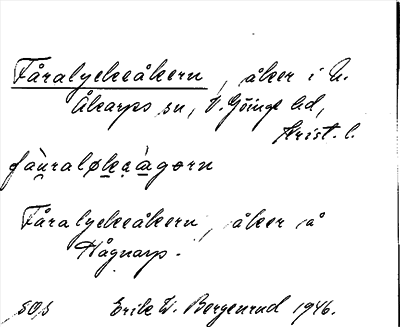 Fåralyckeåkern, åker i N.
Åkarps sn, V. Göinge hd,
Krist. l.
Fåralyckeåkern, åker å
Hågnarp.
50,5 Erik W. Bergenrud 1946.